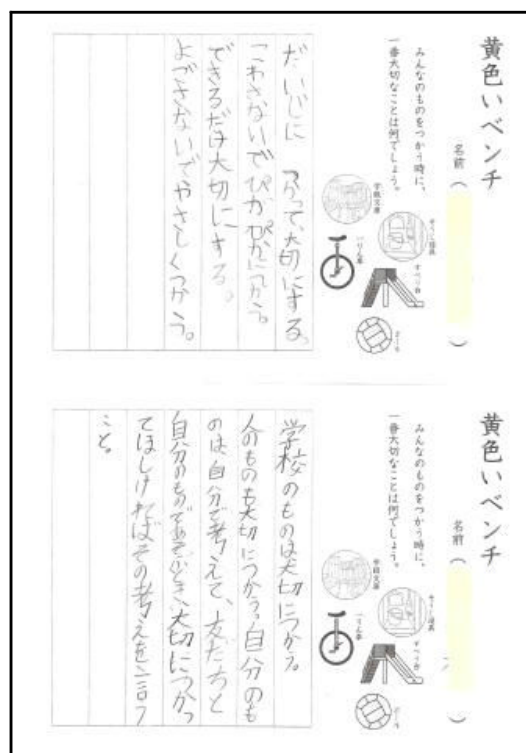 黄色いベンチ
名前（　　　）
みんなのものをつかう時に、
一番大切なことは何でしょう。
学級文庫
一りん車
そうじ用具
すべり台
ボール
だいじに つかって、大切にする。
こわさないでぴかぴかにつかう。
できるだけ大切にする。
よごさないでやさしくつかう。
黄色いベンチ
名前（　　　）
みんなのものをつかう時に、
一番大切なことは何でしょう。
学級文庫
一りん車
そうじ用具
すべり台
ボール
学校のものは大切につかう。
人のものも大切につかう。自分のも
のは、自分で考えて、友だちと
自分のものであそぶとき、大切につかっ
てほしければその考えを言う
こと。